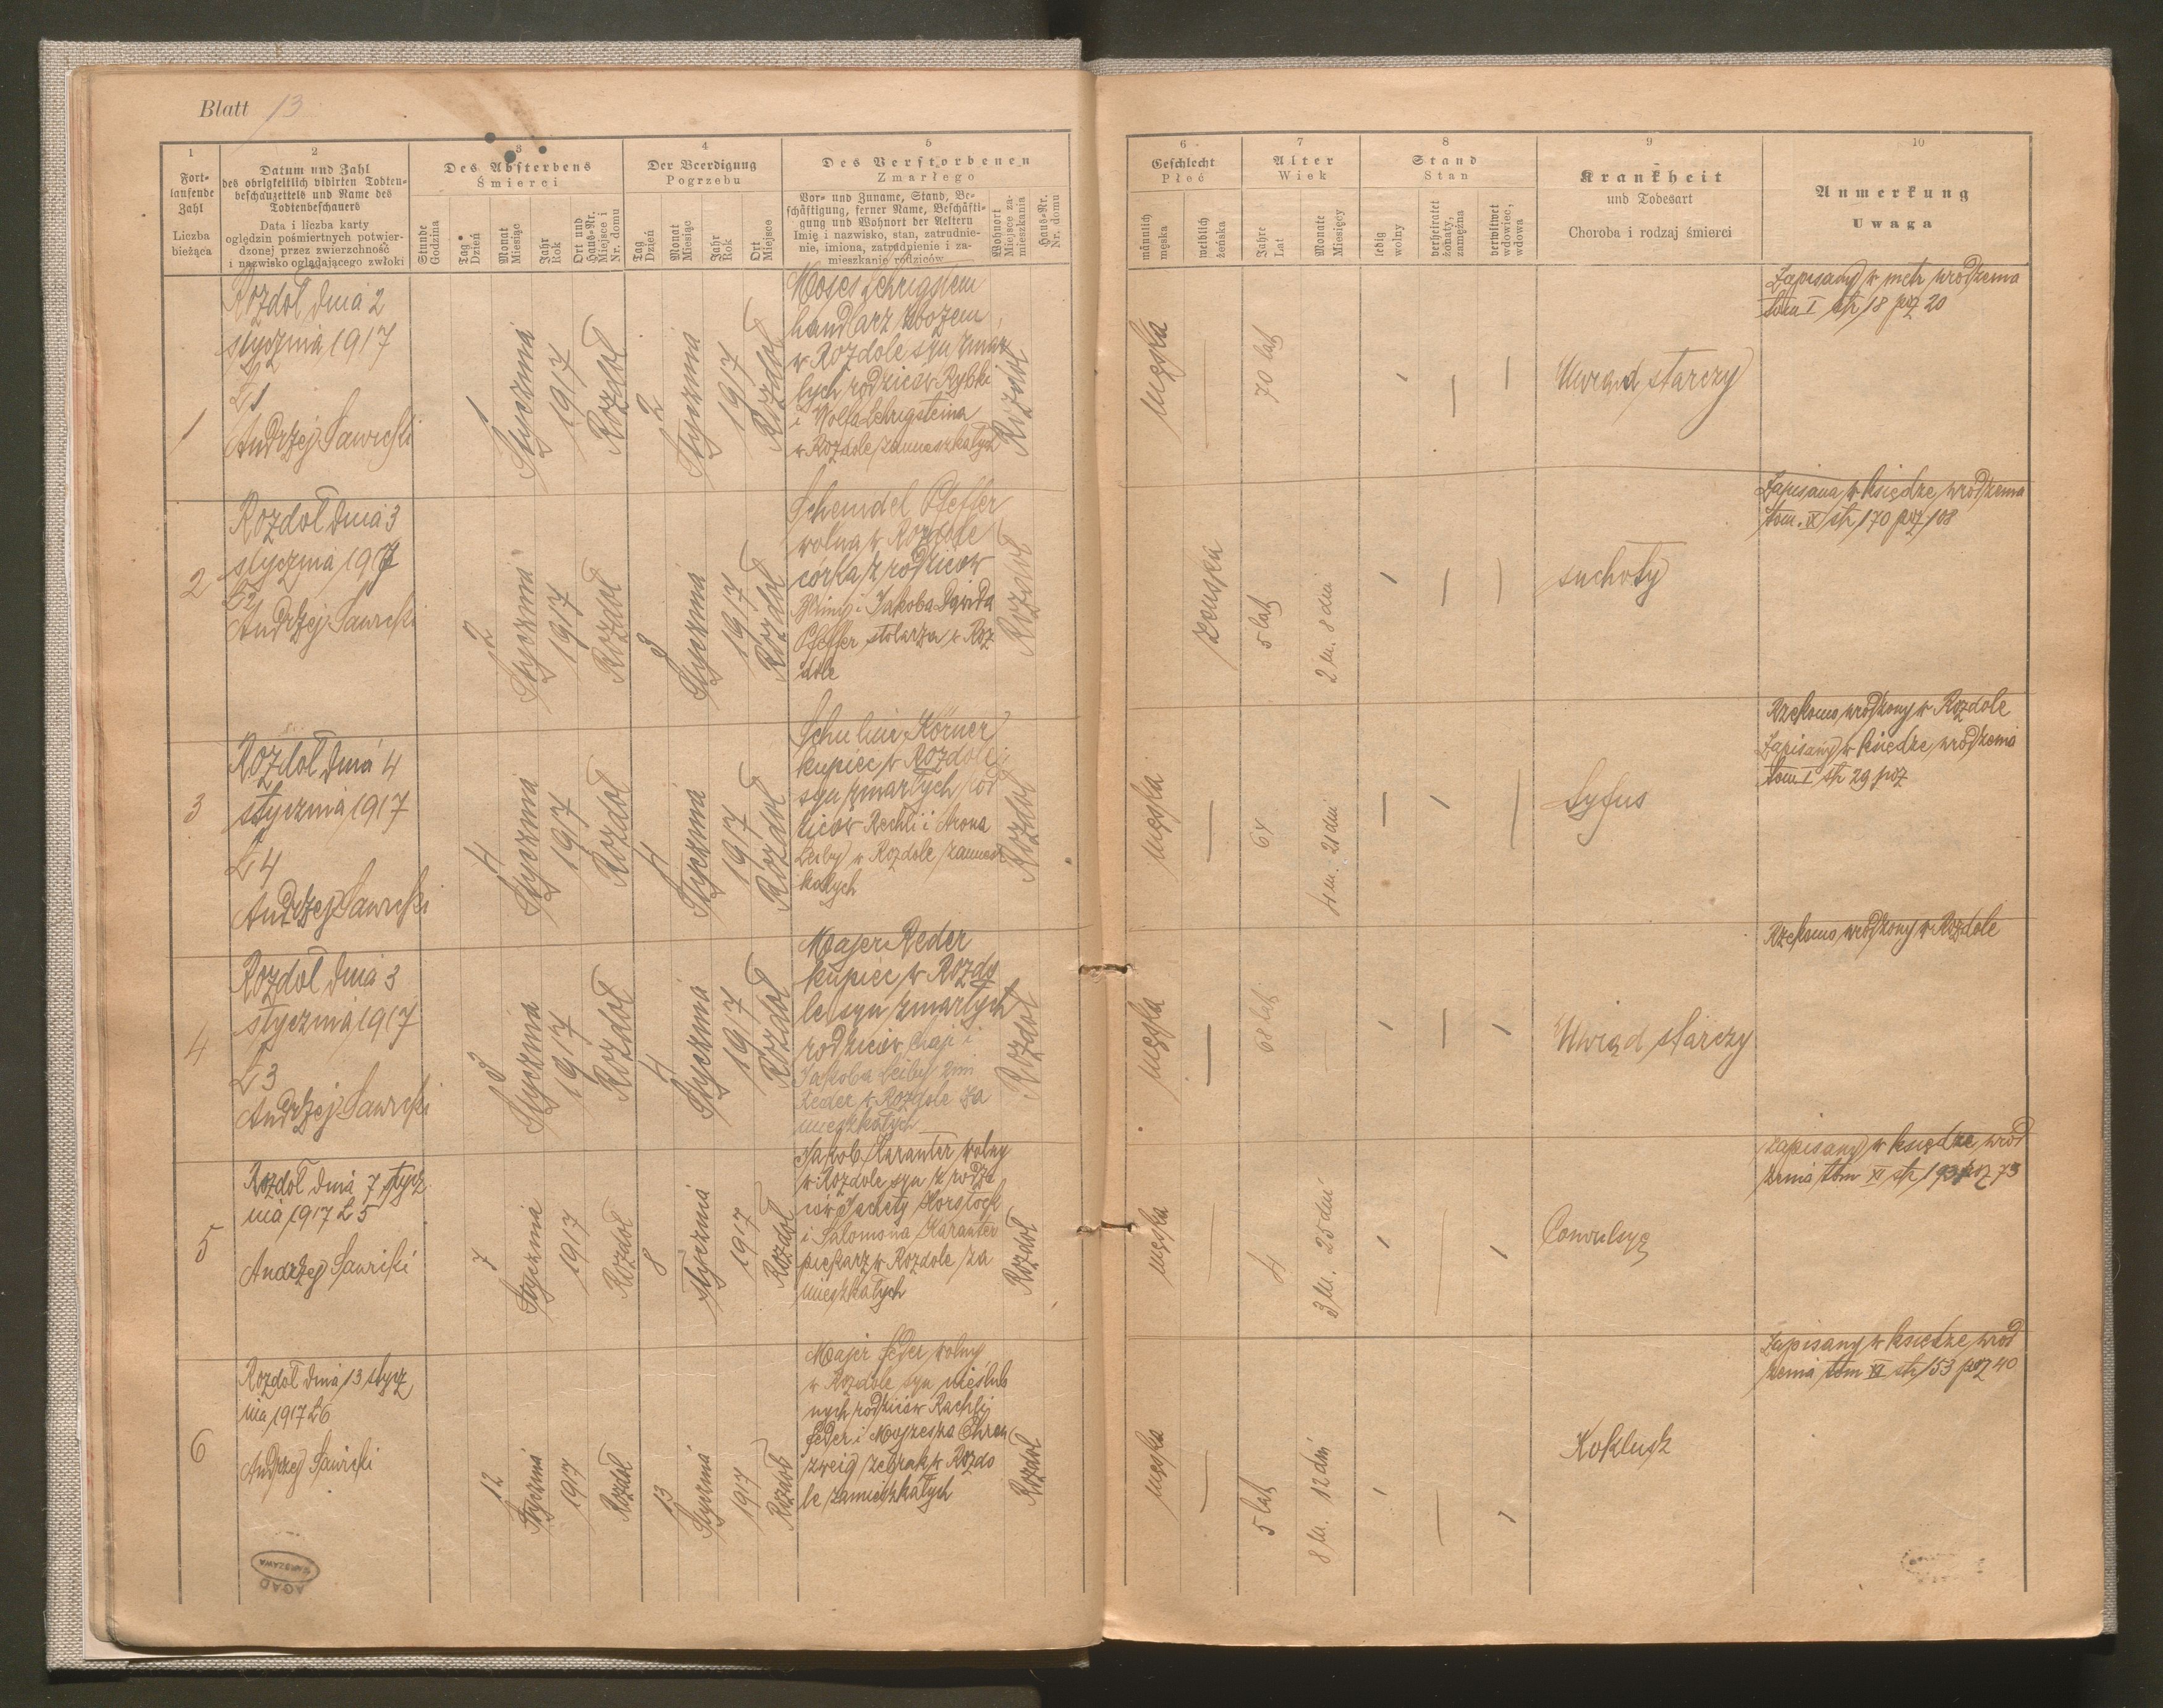 Blatt 13
1
Fort-
laufende
Zahl
Liczba
bieżąca
2
Datum und Zahl
des obrigkeitlich vidirten Todten-
beschauzettels und Name des
Todtenbeschauers
Data i liczba karty
oględzin pośmiertnych potwier-
dzonej przez zwierzchność
i nazwisko oglądającego zwłoki
3
Des Absterbens
Śmierci
Stunde
Godzina
Tag
Dzień
Monat
Miesiąc
Jahr
Rok
Ort und
Haus-Nr.
Miejsce i
Nr. domu
4
Der Beerdigung
Pogrzebu
Tag
Dzień
Monat
Miesiąc
Jahr
Rok
Ort
Miejsce
5
Des Verstorbenen
Zmarłego
Vor- und Zuname, Stand, Be-
schäftigung, ferner Name, Beschäfti-
gung und Wohnort der Aeltern
Imię i nazwisko, stan, zatrudnie-
nie, imiona, zatrudnienie i za-
mieszkanie rodziców
Wohnort
Miejsce za-
mieszkania
Haus-Nr.
Nr. domu
6
Geschlecht
Płeć
männlich
męska
weiblich
żeńska
7
Alter
Wiek
Jahre
Lat
Monate
Miesięcy
8
Stand
Stan
ledig
wolny
verheiratet
żonaty,
zamężna
verwitwet
wdowiec,
wdowa
9
Krankheit
und Todesart
Choroba i rodzaj śmierci
10
Anmerkung
Uwaga
1
Rozdoł dnia 2
stycznia 1917
L 1
Andrzej Sawicki
1
Stycznia
1917
Rozdoł
2
Stycznia
1917
Rozdoł
Moses
handlarz zbożem
w Rozdole syn zmar
łych rodziców Rybki
i Wolfa
w Rozdole zamieszkałych
Rozdoł
męska
70 lat
Uwiąd starczy
Zapisany w metr urodzenia
tom I str 18 poz 20
2
Rozdoł dnia 3
stycznia 1917
L 2
Andrzej Sawicki
2
Stycznia
1917
Rozdoł
3
Stycznia
1917
Rozdoł
Scheindel Pfeffer
wolna w Rozdole
córka z rodziców
i Jakoba Dawida
Pfeffer stolarza w Roz
dole
Rozdoł
żeńska
5 lat
2 m. 8 dni
suchoty
Zapisana w księdze urodzenia
tom. IX str 170 poz 108
3
Rozdoł dnia 4
stycznia 1917
L 4
Andrzej Sawicki
4
Stycznia
1917
Rozdoł
4
Stycznia
1917
Rozdoł
Schulim Körner
kupiec w Rozdole
syn zmarłych rod
ziców Rechli i Arona
Leiby w Rozdole zamiesz
kałych
Rozdoł
męska
64
4 m. 21 dni
Tyfus
Rzekomo urodzony w Rozdole
Zapisany w księdze urodzenia
tom I str 29 poz
4
Rozdoł dnia 3
stycznia 1917
L 3
Andrzej Sawicki
3
Stycznia
1917
Rozdoł
4
Stycznia
1917
Rozdoł
Majer Reder
kupiec w Rozdo
le syn zmarłych
rodziców Chaji i
Jakoba Leiby 2im
Reder w Rozdole za
mieszkałych
Rozdoł
męska
68 lat
Uwiąd starczy
Rzekomo urodzony w Rozdole
5
Rozdoł dnia 7 stycz
nia 1917 L 5
Andrzej Sawicki
7
Stycznia
1917
Rozdoł
8
stycznia
1917
Rozdoł
Jakob Karanter wolny
w Rozdole syn z rodzi
ców Jachety Horstock
i Salomona Karanter
piekarz w Rozdole za
mieszkałych
Rozdoł
męska
4
3 m. 25 dni
Conwulsye
zapisany w księdze urod
zenia tom XI str 193 poz 73
6
Rozdoł dnia 13 stycz
nia 1917 L6
Andrzej Sawicki
12
Stycznia
1917
Rozdoł
13
Stycznia
1917
Rozdoł
Majer Feder wolny
w Rozdole syn nieślub
nych rodziców Rachli
Feder i Mojżesza Ehren
zweig żebrak w Rozdo
le zamieszkałych
Rozdoł
męska
5 lat
8 m. 12 dni
Koklusz
zapisany w księdze urod
zenia tom XI str 153 poz 40
AGAD
WARSZAWA